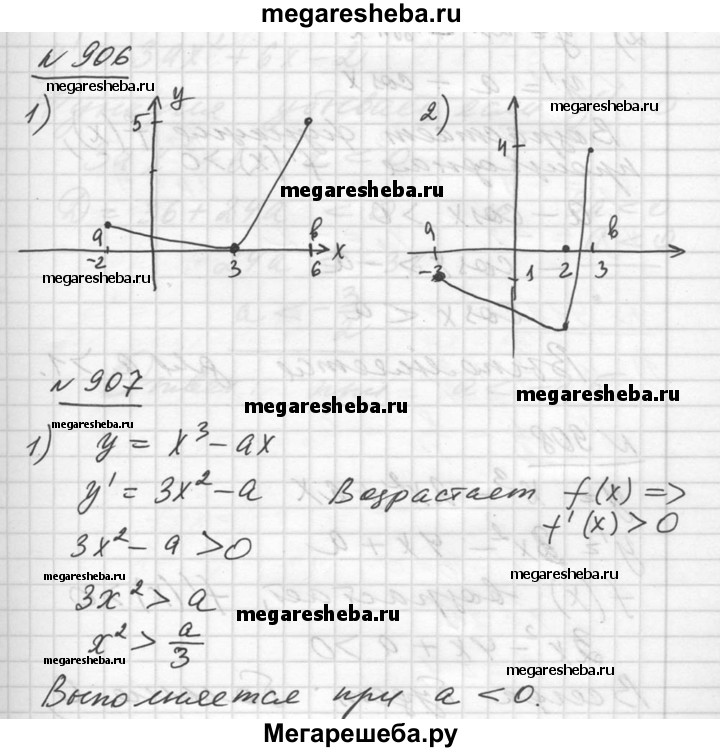 megaresheba.ru
№ 906
megaresheba.ru
megaresheba.ru
1)
y
5
a
-2
3
b
6
x
2)
4
a
-3
1
2
3
b
megaresheba.ru
megaresheba.ru
megaresheba.ru
№ 907
megaresheba.ru
megaresheba.ru
megaresheba.ru
1) y = x³ - ax
y' = 3x² - a Возрастает f(x) =>
f'(x) > 0
3x² - a > 0
megaresheba.ru
megaresheba.ru
3x² > a
megaresheba.ru
x² > a/3
megaresheba.ru
megaresheba.ru
Выполняется при a < 0.
Мегарешеба.ру